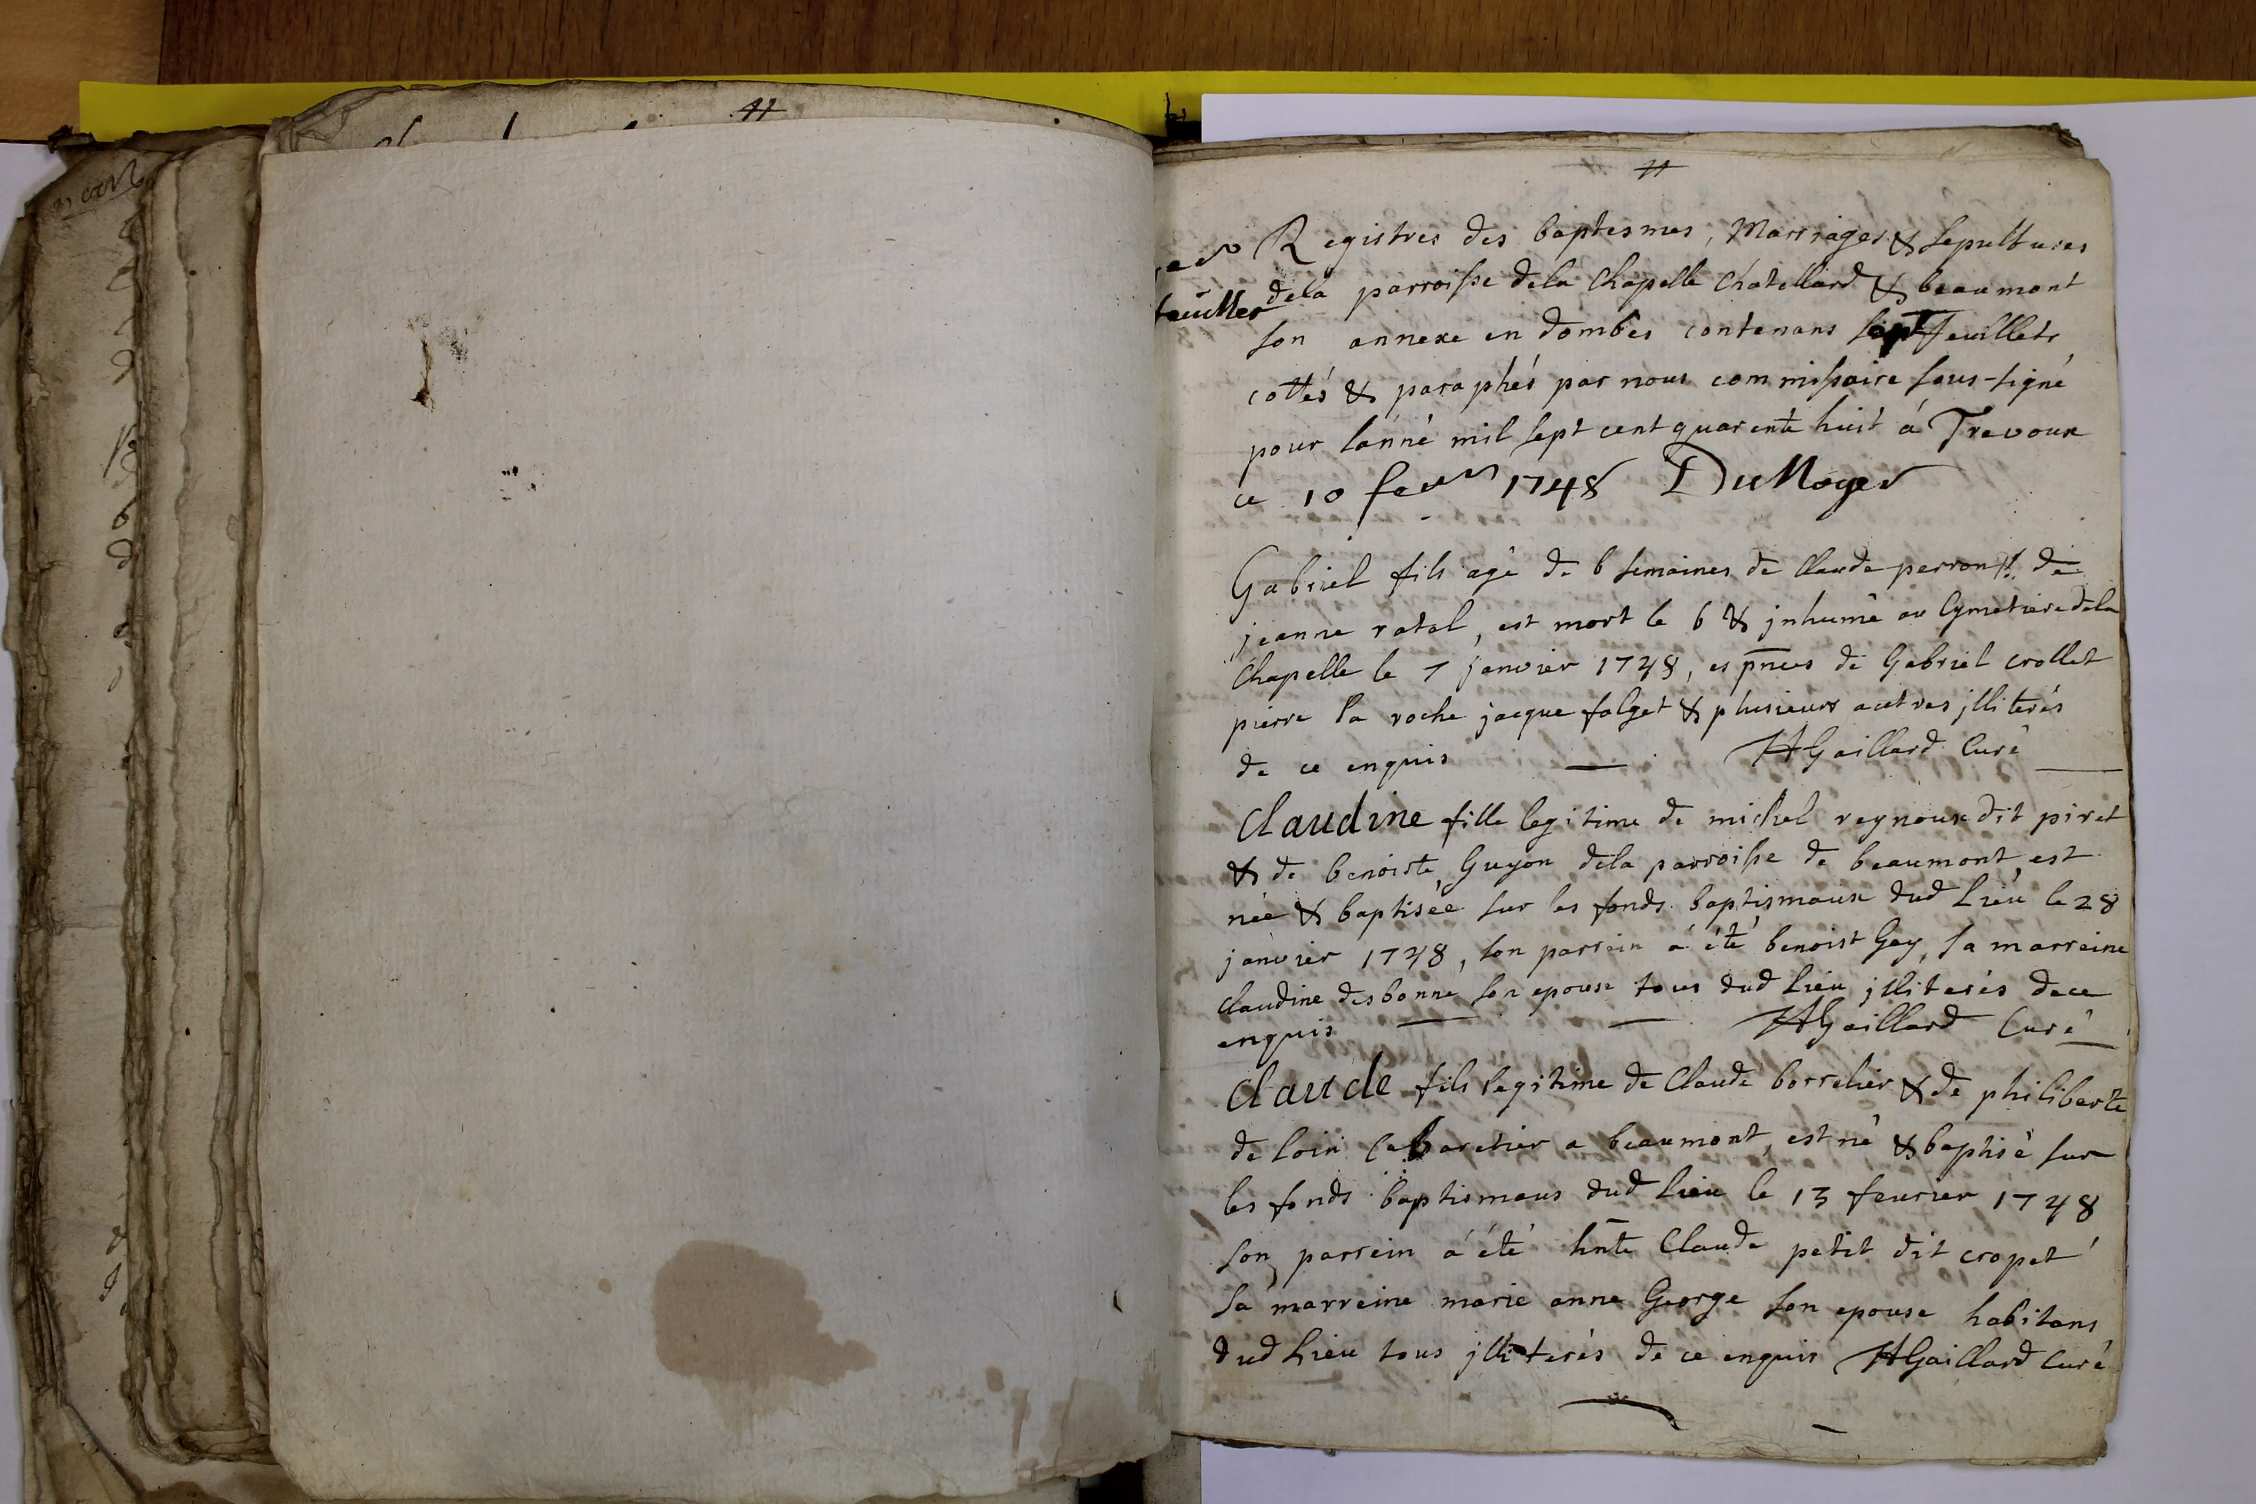 Registres des baptesmes, Marriages & sepultures
dela parroisse dela Chapelle Chatellard & beaumont
feuilles
son annexe en dombes contenans sept feuillets
cottés & paraphés par nous commissaire sous-signé
pour lánné mil sept cent quarente huit á Trevoux
ce 10 fevr 1748 DuNoyer
Gabriel fils agé de 6 semaines de Claude perron & de
jeanne ratal, est mort le 6 & jnhumé au Cymetiere dela
Chapelle le 7 janvier 1748, es pnces de Gabriel crollet
pierre la roche jacque falget & plusieurs autres jlliterés
de ce enquis HGaillard Curé
Claudine fille legitime de michel reynoux dit piret
& de benoiste Guyon dela parroisse de beaumont est
née & baptisée sur les fonds baptismaux dud lieu le 28
janvier 1748, son parrein á été benoist Gay, sa marreine
Claudine desbonne son epouse tous dud lieu jlliterés de ce
enquis HGaillard Curé
Claude fils legitime de Claude borrelier & de philiberte
de loin Cabaretier a beaumont, est né & baptisé sur
les fonds baptismaux dud lieu le 13 feurier 1748
son parrein á été hnte Claude petit dit cropet
sa marreine marie anne George son epouse habitans
dud lieu tous jlliterés de ce enquis HGaillard Curé